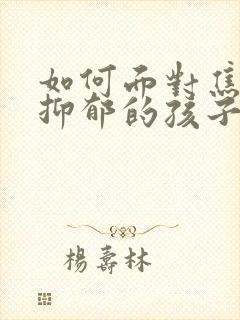 如何面對焦
抑郁的孩子
楊壽林